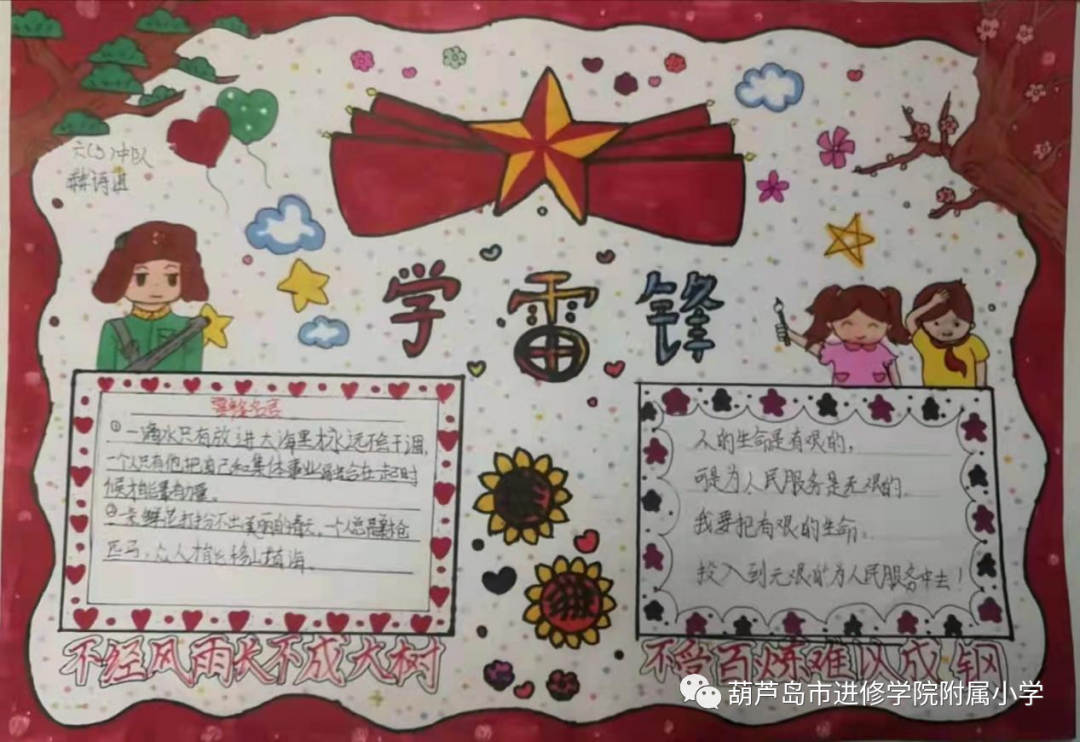 六(5)中队
学雷锋
雷锋名言
①一滴水只有放进大海里才永远不会干涸,
一个人只有他把自己和集体事业融合在一起时
候才能最有力量。
②一朵鲜花打扮不出美丽的春天,一个人总是单枪
匹马,众人才能移山填海。
人的生命是有限的,
可是为人民服务是无限的,
我要把有限的生命,
投入到无限的为人民服务中去!
不经风雨长不成大树
不受百炼难以成钢
葫芦岛市进修学院附属小学